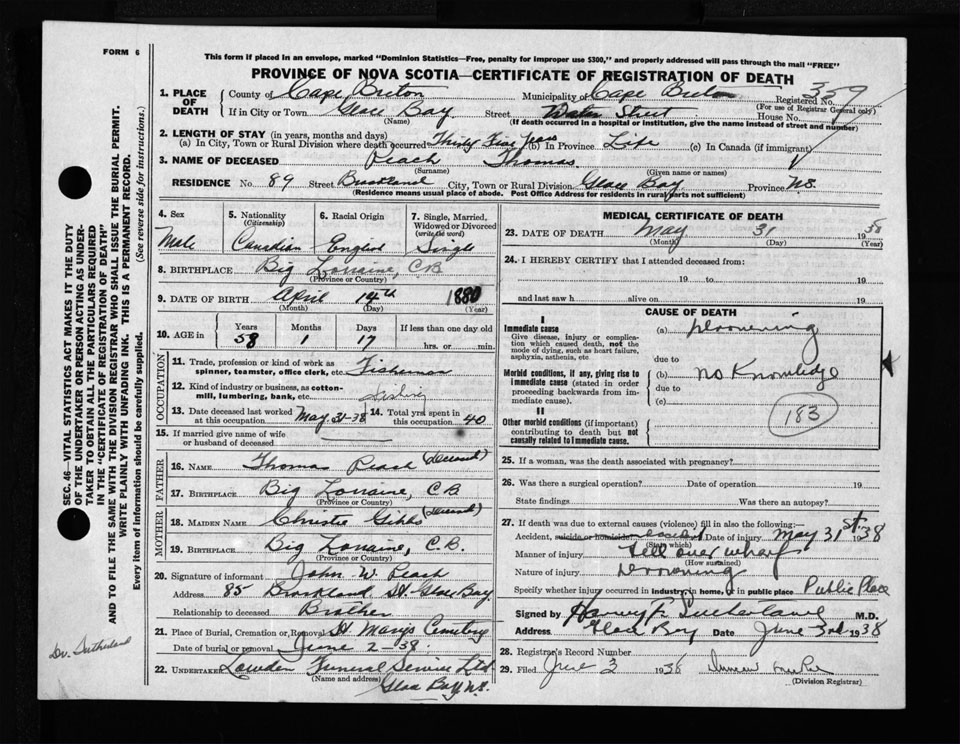 FORM 6
This form if placed in an envelope, marked "Dominion Statistics—Free, penalty for improper use $300," and properly addressed will pass through the mail "FREE"
PROVINCE OF NOVA SCOTIA—CERTIFICATE OF REGISTRATION OF DEATH
359
1. PLACE OF DEATH County of Cape Breton Municipality of Cape Breton Registered No.
(For use of Registrar General only)
If in City or Town Glace Bay Street Water Street House No.
(Name) (If death occurred in a hospital or institution, give the name instead of street and number)
2. LENGTH OF STAY (in years, months and days)
(a) In City, Town or Rural Division where death occurred Thirty Five Years (b) In Province Life (c) In Canada (if immigrant)
3. NAME OF DECEASED Peach Thomas.
(Surname) (Given name or names)
RESIDENCE No. 89 Street City, Town or Rural Division Glace Bay Province N.S.
(Residence means usual place of abode. Post Office Address for residents in rural parts not sufficient)
4. Sex Male
5. Nationality (Citizenship) Canadian
6. Racial Origin English
7. Single, Married, Widowed or Divorced (write the word) Single
8. BIRTHPLACE Big Lorraine, C.B.
(Province or Country)
9. DATE OF BIRTH April 14th 1880
(Month) (Day) (Year)
10. AGE in Years 58 Months 1 Days 17 If less than one day old hrs. or min.
OCCUPATION
11. Trade, profession or kind of work as spinner, teamster, office clerk, etc. Fisherman
12. Kind of industry or business, as cotton-mill, lumbering, bank, etc. Fishing
13. Date deceased last worked at this occupation May 31-38 14. Total yrs. spent in this occupation 40
15. If married give name of wife or husband of deceased
FATHER
16. NAME Thomas Peach (deceased)
17. BIRTHPLACE Big Lorraine, C.B.
(Province or Country)
MOTHER
18. MAIDEN NAME Christie Gibbs (deceased)
19. BIRTHPLACE Big Lorraine, C.B.
(Province or Country)
20. Signature of informant John W. Peach
Address 85 Brookland St. Glace Bay
Relationship to deceased Brother
21. Place of Burial, Cremation or Removal St Marys Cemetery
Date of burial or removal June 2-38.
22. UNDERTAKER Lowden Funeral Service Ltd
(Name and address) Glace Bay N.S.
MEDICAL CERTIFICATE OF DEATH
23. DATE OF DEATH May 31 1938
(Month) (Day) (Year)
24. I HEREBY CERTIFY that I attended deceased from
19 to 19
and last saw h alive on 19
CAUSE OF DEATH
I
Immediate cause
Give disease, injury or complication which caused death, not the mode of dying, such as heart failure, asphyxia, asthenia, etc.
(a) Drowning
due to
Morbid conditions, if any, giving rise to immediate cause (stated in order proceeding backwards from immediate cause).
(b) No Knowledge
due to
(c)
183
II
Other morbid conditions (if important) contributing to death but not causally related to immediate cause.
25. If a woman, was the death associated with pregnancy?
26. Was there a surgical operation? Date of operation 19
State findings Was there an autopsy?
27. If death was due to external causes (violence) fill in also the following:—
Accident, suicide or homicide accident Date of injury May 31st 1938
(State which)
Manner of injury Fell over wharf
(How sustained)
Nature of injury Drowning
Specify whether injury occurred in industry, in home, or in public place Public Place
Signed by Harvey F. Sutherland M.D.
Address Glace Bay Date June 3rd 1938
28. Registrar's Record Number
29. Filed June 3 1938
(Division Registrar)
SEC. 46—VITAL STATISTICS ACT MAKES IT THE DUTY
OF THE UNDERTAKER OR PERSON ACTING AS UNDER-
TAKER TO OBTAIN ALL THE PARTICULARS REQUIRED
IN THE "CERTIFICATE OF REGISTRATION OF DEATH"
AND TO FILE THE SAME WITH THE DIVISION REGISTRAR WHO SHALL ISSUE THE BURIAL PERMIT.
WRITE PLAINLY WITH UNFADING INK. THIS IS A PERMANENT RECORD.
Every item of information should be carefully supplied. (See reverse side for instructions.)
Dr. Sutherland